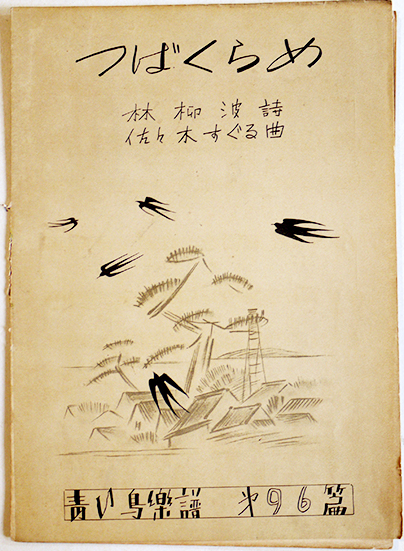 つばくらめ
林 柳波 詩
佐々木すぐる曲
青い鳥樂譜 第96篇